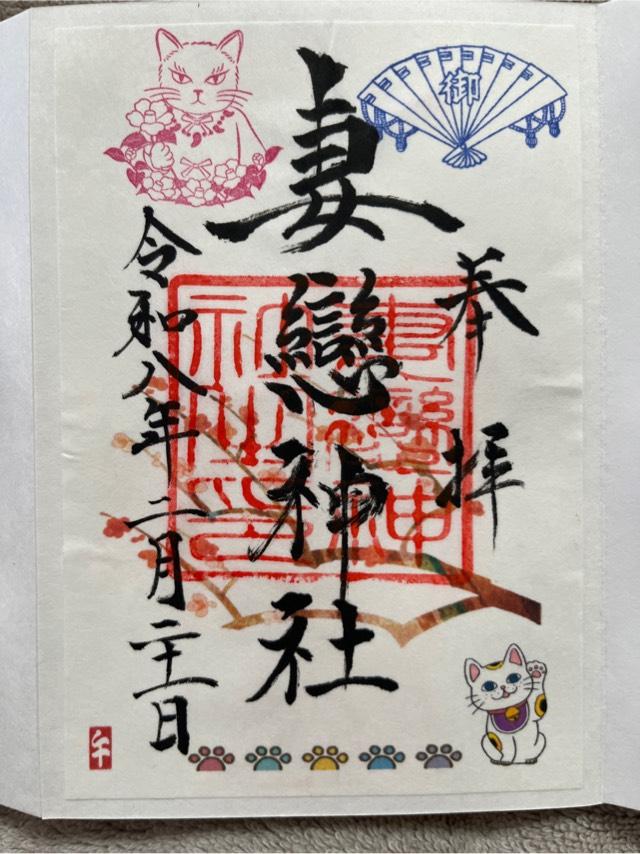 御
奉拝
妻戀神社
令和八年二月二十一日
午